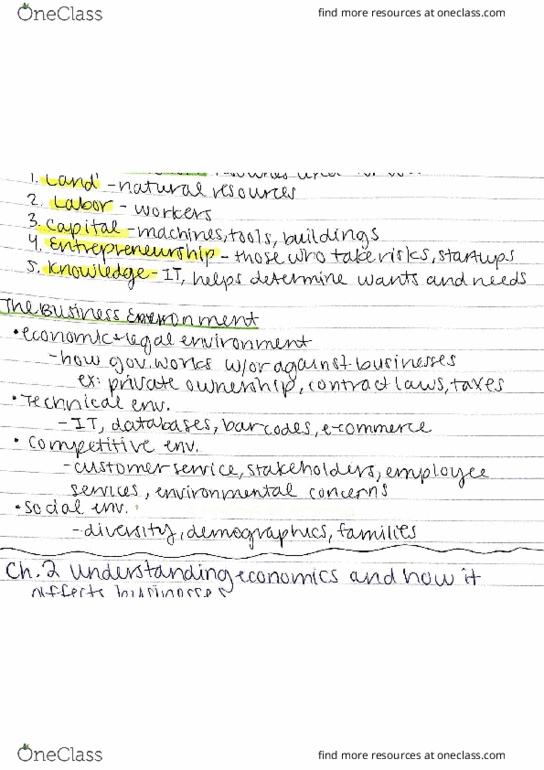 OneClass
find more resources at oneclass.com
1. Land - natural resources
2. Labor - workers
3. Capital - machines, tools, buildings
4. Entrepreneurship - those who take risks, startups
5. Knowledge - IT, helps determine wants and needs
The Business Environment
• economic + legal environment
- how gov. works w/or against businesses
ex: private ownership, contract laws, taxes
• Technical env.
- IT, databases, barcodes, e-commerce
• Competitive env.
- customer service, stakeholders, employee
services, environmental concerns
• social env.
- diversity, demographics, families
Ch. 2 Understanding economics and how it
affects businesses
OneClass
find more resources at oneclass.com